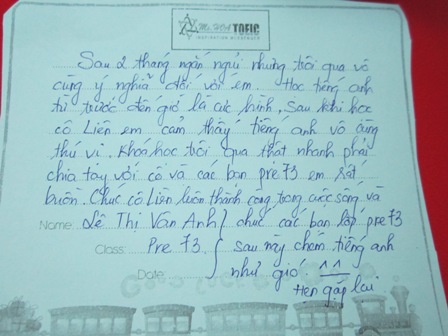 Ms. HOA TOEIC
Sau 2 tháng ngắn ngủi nhưng trôi qua vô
cùng ý nghĩa đối với em. Học tiếng anh
từ trước đến giờ là cực hình. Sau khi học
cô Liên em cảm thấy tiếng anh vô cùng
thú vị. Khoá học trôi qua thật nhanh phải
chia tay với cô và các bạn pre 73 em rất
buồn. Chúc cô Liên luôn thành công trong cuộc sống và
Name: Lê Thị Vân Anh chúc các bạn lớp pre 73
Class: Pre 73 sau này chém tiếng anh
Date: như gió ^^
Hẹn gặp lại